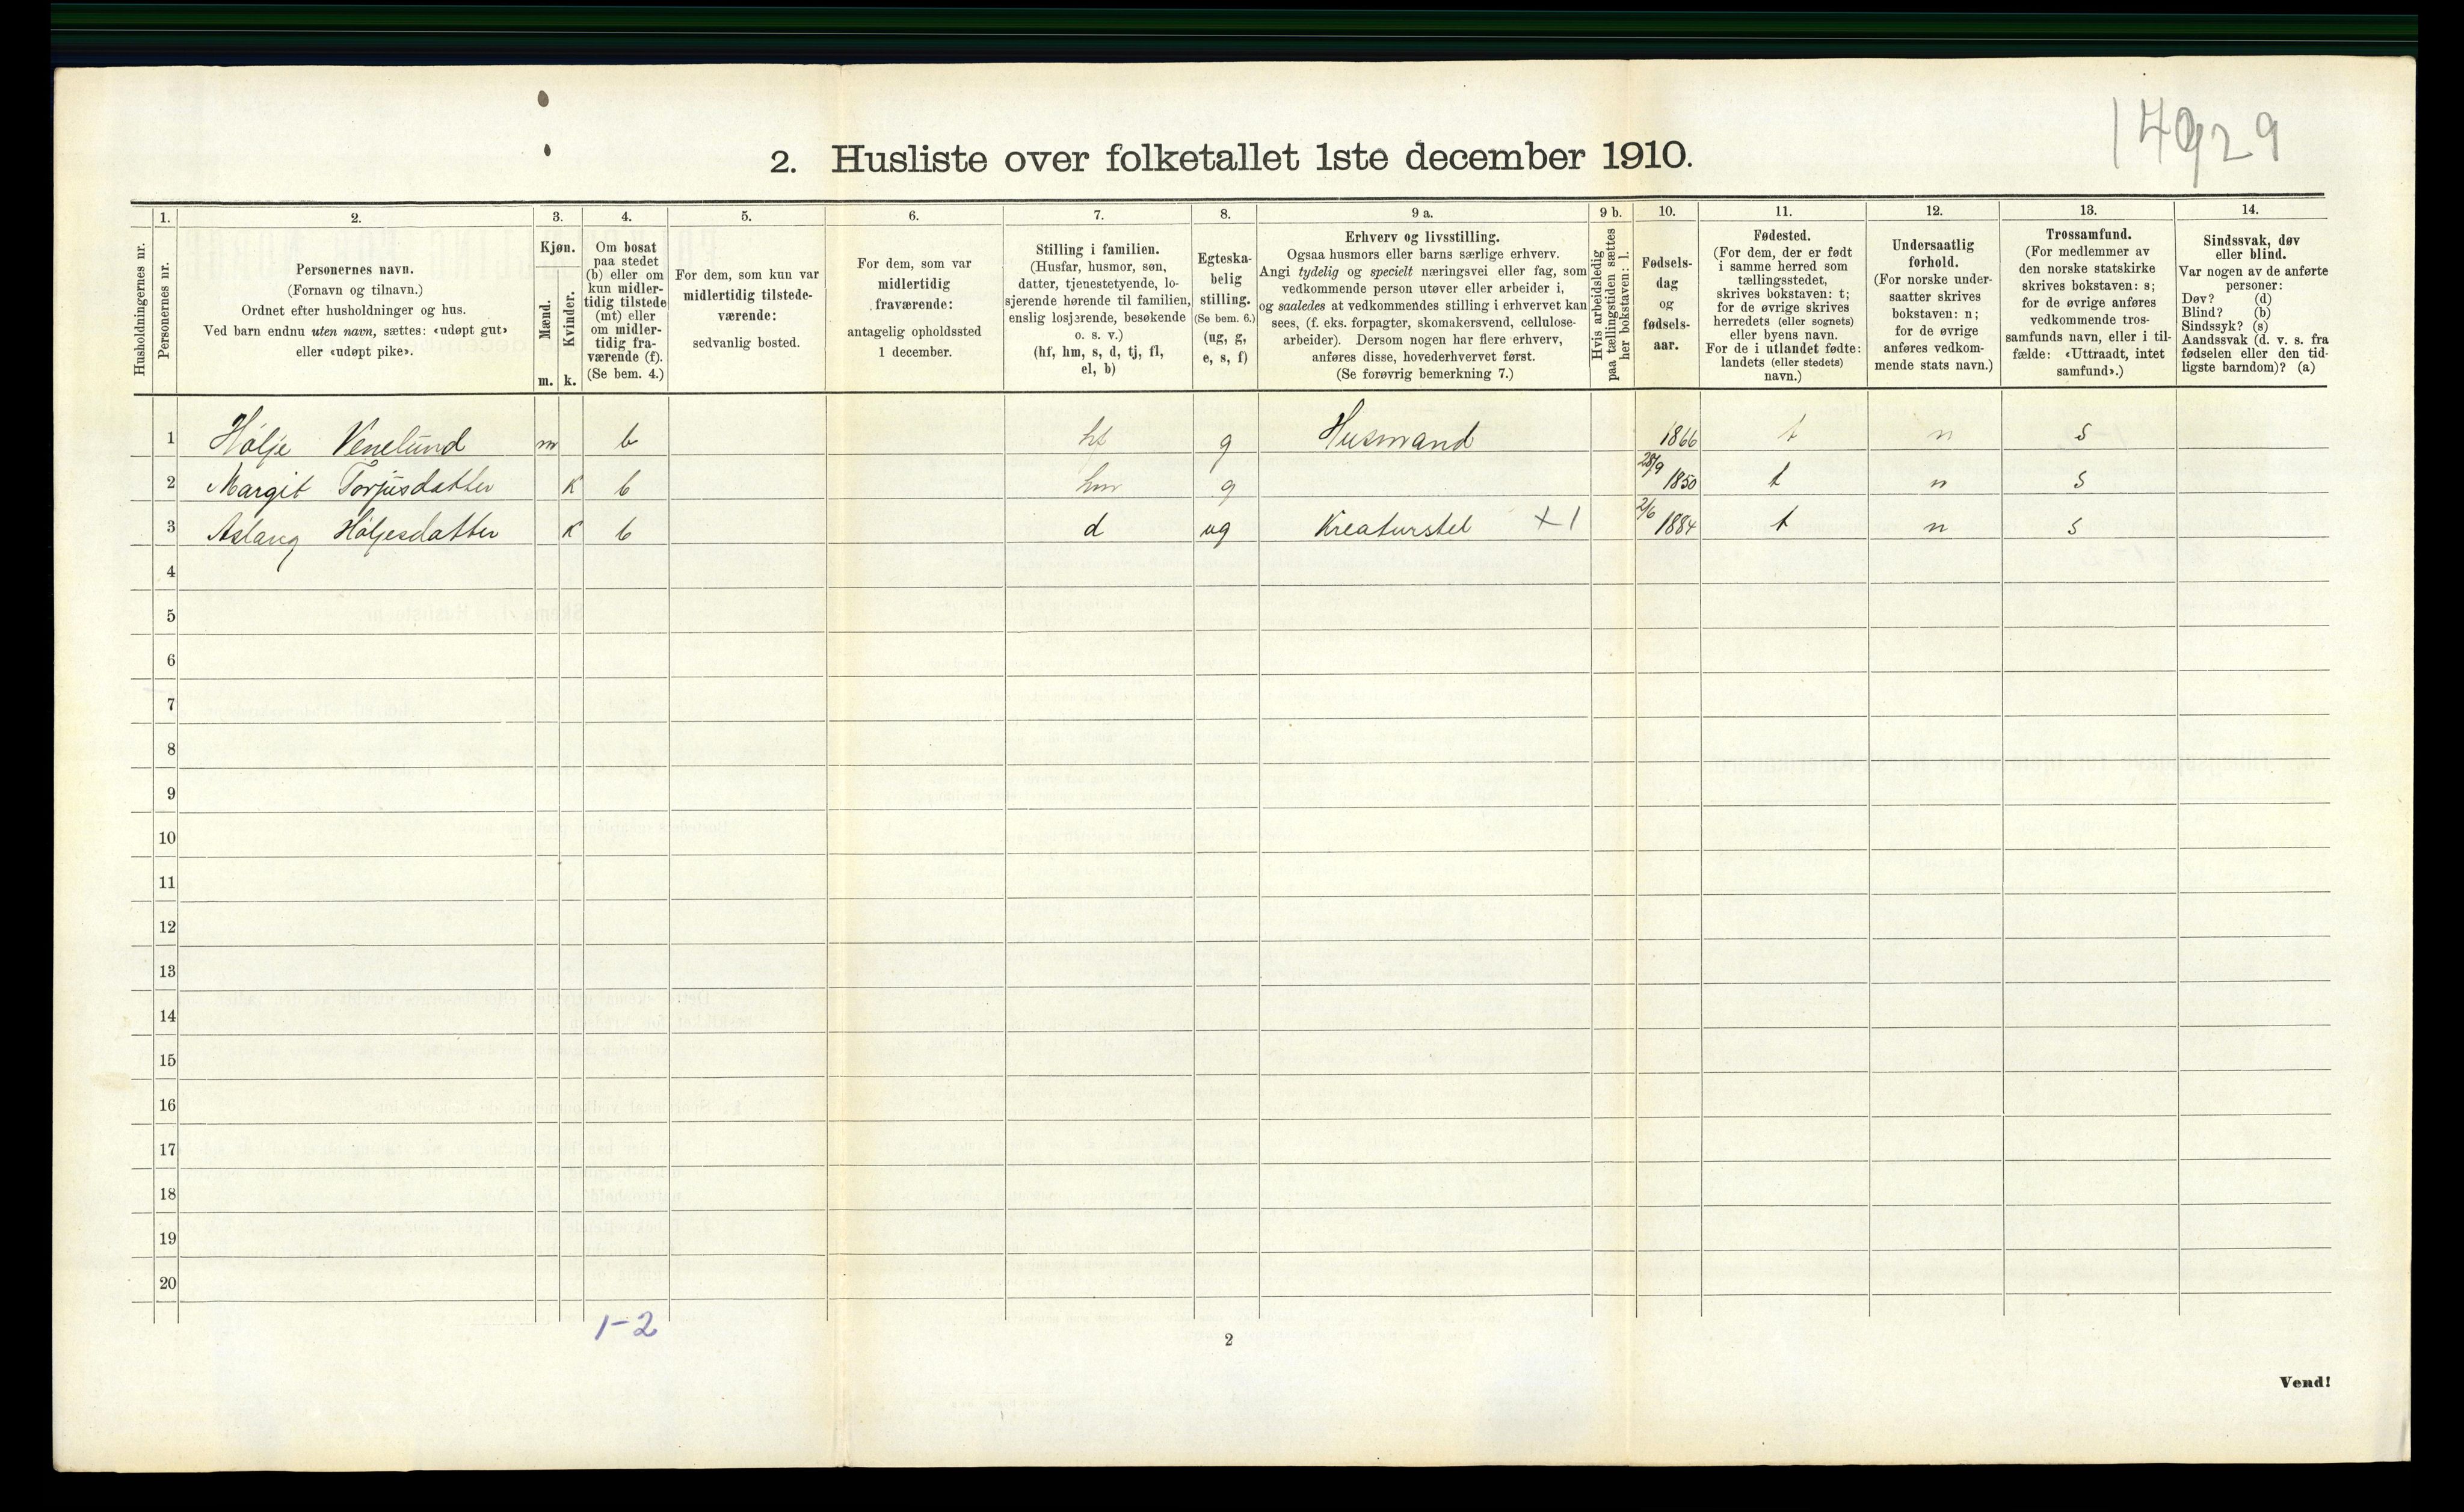 14929
2. Husliste over folketallet 1ste december 1910.
Husholdningernes nr.
1. Personernes nr.
2. Personernes navn.
(Fornavn og tilnavn.)
Ordnet efter husholdninger og hus.
Ved barn endnu uten navn, sættes: «udøpt gut»
eller «udøpt pike».
3. Kjøn.
Mænd. m.
Kvinder. k.
4. Om bosat
paa stedet
(b) eller om
kun midler-
tidig tilstede
(mt) eller
om midler-
tidig fra-
værende (f).
(Se bem. 4.)
5. For dem, som kun var
midlertidig tilstede-
værende:
sedvanlig bosted.
6. For dem, som var
midlertidig
fraværende:
antagelig opholdssted
1 december.
7. Stilling i familien.
(Husfar, husmor, søn,
datter, tjenestetyende, lo-
sjerende hørende til familien,
enslig losjerende, besøkende
o. s. v.)
(hf, hm, s, d, tj, fl,
el, b)
8. Egteska-
belig
stilling.
(Se bem. 6.)
(ug, g,
e, s, f)
9 a. Erhverv og livsstilling.
Ogsaa husmors eller barns særlige erhverv.
Angi tydelig og specielt næringsvei eller fag, som
vedkommende person utøver eller arbeider i,
og saaledes at vedkommendes stilling i erhvervet kan
sees, (f. eks. forpagter, skomakersvend, cellulose-
arbeider). Dersom nogen har flere erhverv,
anføres disse, hovederhvervet først.
(Se forøvrig bemerkning 7.)
9 b. Hvis arbeidsledig
paa tællingstiden sættes
her bokstaven: l.
10. Fødsels-
dag
og
fødsels-
aar.
11. Fødested.
(For dem, der er født
i samme herred som
tællingsstedet,
skrives bokstaven: t;
for de øvrige skrives
herredets (eller sognets)
eller byens navn.
For de i utlandet fødte:
landets (eller stedets)
navn.)
12. Undersaatlig
forhold.
(For norske under-
saatter skrives
bokstaven: n;
for de øvrige
anføres vedkom-
mende stats navn.)
13. Trossamfund.
(For medlemmer av
den norske statskirke
skrives bokstaven: s;
for de øvrige anføres
vedkommende tros-
samfunds navn, eller i til-
fælde: «Uttraadt, intet
samfund».)
14. Sindssvak, døv
eller blind.
Var nogen av de anførte
personer:
Døv? (d)
Blind? (b)
Sindssyk? (s)
Aandssvak (d. v. s. fra
fødselen eller den tid-
ligste barndom)? (a)
1 Hølje Venelund m b hf g Husmand 1866 t n s
2 Margit Torjusdatter k b hm g 28/9 1850 t n s
3 Aslaug Høljesdatter k b d ug Kreaturstel X 1 2/6 1884 t n s
4
5
6
7
8
9
10
11
12
13
14
15
16
17
18
19
20
1-2
2
Vend!